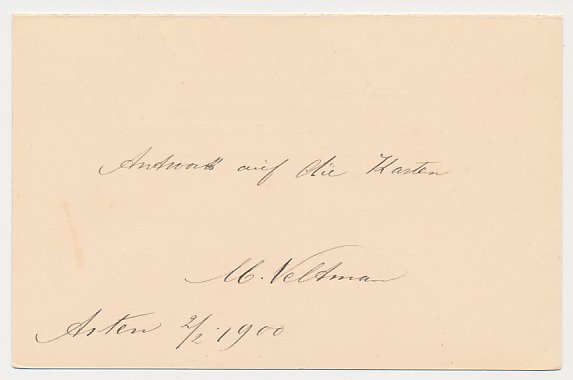 Antwort auf die Karten
M. Veltman
Asten 2/2 1900